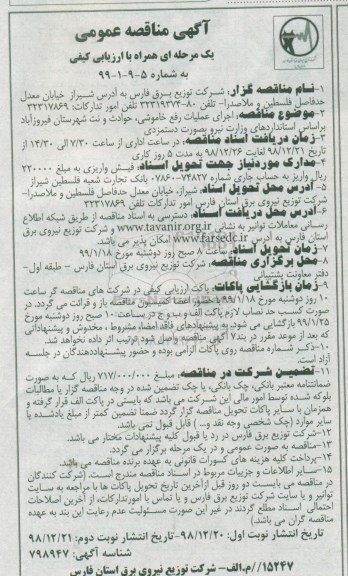 آگهی مناقصه عمومی
یک مرحله ای همراه با ارزیابی کیفی
به شماره ۵-۹-۱-۹۹
۱-نام مناقصه گزار: شرکت توزیع برق فارس به آدرس شیراز خیابان معدل
حدفاصل فلسطین و ملاصدرا- تلفن ۸۰-۳۲۳۱۹۳۷۴ تلفن امور تدارکات: ۳۲۳۱۷۸۶۹
۲-موضوع مناقصه: اجرای عملیات رفع خاموشی، حوادث و نت شهرستان فیروزآباد
براساس استانداردهای وزارت نیرو بصورت دستمزدی
۳-زمان دریافت اسناد مناقصه: در ساعت اداری از ساعت ۷/۳۰ الی ۱۴/۳۰ از
تاریخ ۹۸/۱۲/۲۱ لغایت ۹۸/۱۲/۲۶ به مدت ۵ روز کاری
۴-مدارک موردنیاز جهت تحویل اسناد: فیش واریزی به مبلغ ۲۲۰۰۰۰
ریال واریز به حساب جاری شماره ۷۴۸۲۷-۰۷۸۶۰ بانک تجارت شعبه فلسطین شیراز
۵-آدرس محل تحویل اسناد: شیراز، خیابان معدل حدفاصل فلسطین و ملاصدرا-
شرکت توزیع نیروی برق استان فارس امور تدارکات تلفن ۳۲۳۱۷۸۶۹
۶-آدرس محل دریافت اسناد: دسترسی به اسناد مناقصه از طریق شبکه اطلاع
رسانی معاملات توانیر به نشانی www.tavanir.org.ir و شرکت توزیع نیروی برق
استان فارس به آدرس www.farsedc.ir امکان پذیر می باشد.
۷-زمان تحویل اسناد: ساعت ۸ صبح روز دوشنبه مورخ ۹۹/۱/۱۸
۸-محل برگزاری مناقصه: شرکت توزیع نیروی برق استان فارس - طبقه اول-
دفتر معاونت پشتیبانی
۹-زمان بازگشایی پاکات: پاکت ارزیابی کیفی در شرکت های مناقصه گر ساعت
۱۰ روز دوشنبه مورخ ۹۹/۱/۱۸ با حضور اعضا کمیسیون مناقصه باز و قرائت می گردد. در
صورت کسب حد نصاب لازم پاکت الف و ب و ج در ساعت ۱۰ صبح روز دوشنبه مورخ
۹۹/۱/۲۵ بازگشایی می شود. به پیشنهادهای فاقد امضا، مشروط، مخدوش و پیشنهاداتی
که بعد از موعد مقرر در بند۷ آگهی مناقصه واصل شود ترتیب اثر داده نخواهد شد.
۱۰-ذکر شماره مناقصه روی پاکات الزامی بوده و حضور پیشنهاددهندگان در جلسه
آزاد است.
۱۱-تضمین شرکت در مناقصه: مبلغ ۷۱۷/۰۰۰/۰۰۰ ریال که به صورت
ضمانتنامه معتبر بانکی، چک بانکی، یا چک تضمین شده در وجه مناقصه گزار یا مطالبات
بلوکه شده توسط امور مالی این شرکت می باشد که بایستی در پاکت الف قرار گرفته و
همزمان با سایر پاکات تحویل مناقصه گزار گردد ضمنا تضمین کمتر از مبلغ یادشده یا
سایر موارد (چک شخصی وجه نقد و...) قابل قبول نمی باشد.
۱۲-شرکت توزیع برق فارس در رد یا قبول کلیه پیشنهادات مختار می باشد.
۱۳-مناقصه به صورت عمومی و در یک مرحله برگزار می گردد.
۱۴-پرداخت کلیه هزینه های کسورات قانونی به عهده برنده مناقصه می باشد.
۱۵-سایر اطلاعات و جزییات مربوط در اسناد مناقصه مندرج است. (شرکت کنندگان
در مناقصه می بایست دو روز قبل ازآخرین تاریخ تحویل پاکات ها با مراجعه به سایت
توانیر و یا سایت شرکت توزیع برق فارس و یا تماس با امورتدارکات، از آخرین اصلاحات
احتمالی اسناد مطلع گردند در غیر این صورت مسئولیت عدم رعایت این بند به عهده
مناقصه گران می باشد)
تاریخ انتشار نوبت اول: ۹۸/۱۲/۲۰-تاریخ انتشار نوبت دوم: ۹۸/۱۲/۲۱
شناسه آگهی: ۷۹۸۹۴۷
۱۵۲۴۷/م.الف- شرکت توزیع نیروی برق استان فارس